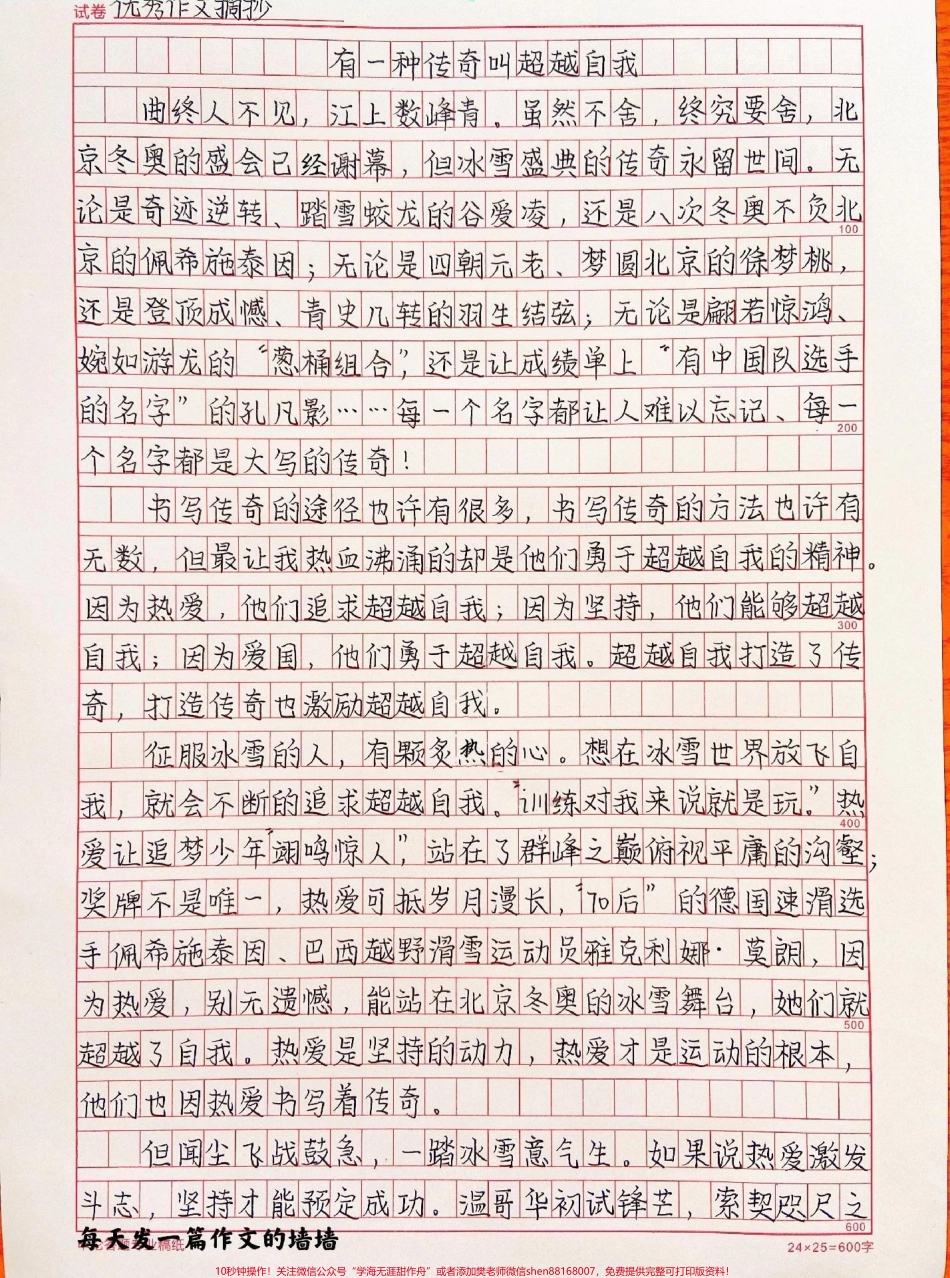 试卷 优秀作文摘抄
有一种传奇叫超越自我
曲终人不见，江上数峰青。虽然不舍，终究要舍，北
京冬奥的盛会已经谢幕，但冰雪盛典的传奇永留世间。无
论是奇迹逆转、踏雪蛟龙的谷爱凌，还是八次冬奥不负北
100
京的佩希施泰因；无论是四朝元老、梦圆北京的徐梦桃，
还是登顶成憾、青史几转的羽生结弦；无论是翩若惊鸿、
婉如游龙的“葱桶组合”，还是让成绩单上“有中国队选手
的名字”的孔凡影……每一个名字都让人难以忘记、每一
200
个名字都是大写的传奇！
书写传奇的途径也许有很多，书写传奇的方法也许有
无数，但最让我热血沸涌的却是他们勇于超越自我的精神。
因为热爱，他们追求超越自我；因为坚持，他们能够超越
300
自我；因为爱国，他们勇于超越自我。超越自我打造了传
奇，打造传奇也激励超越自我。
征服冰雪的人，有颗炙热的心。想在冰雪世界放飞自
我，就会不断的追求超越自我。“训练对我来说就是玩。”热
400
爱让追梦少年“翊鸣惊人”，站在了群峰之巅俯视平庸的沟壑；
奖牌不是唯一，热爱可抵岁月漫长，“70后”的德国速滑选
手佩希施泰因、巴西越野滑雪运动员雅克利娜·莫朗，因
为热爱，别无遗憾，能站在北京冬奥的冰雪舞台，她们就
500
超越了自我。热爱是坚持的动力，热爱才是运动的根本，
他们也因热爱书写着传奇。
但闻尘飞战鼓急，一踏冰雪意气生。如果说热爱激发
斗志，坚持才能预定成功。温哥华初试锋芒，索契咫尺之
600
每天发一篇作文的墙墙
24×25=600字
10秒钟操作！关注微信公众号“学海无涯甜作舟”或者添加樊老师微信shen88168007，免费提供完整可打印版资料！